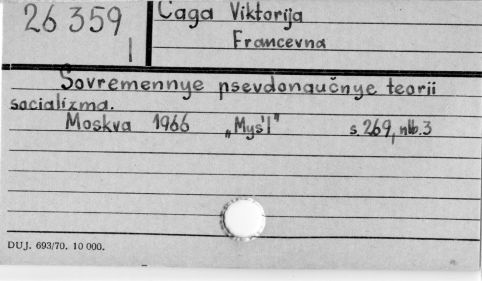 26 359
I
Caga Viktorija
Francevna
Sovremennye psevdonaučnye teorii
socializma.
Moskva 1966 „Mys'l" s. 269, nlb. 3
DUJ. 693/70. 10 000.